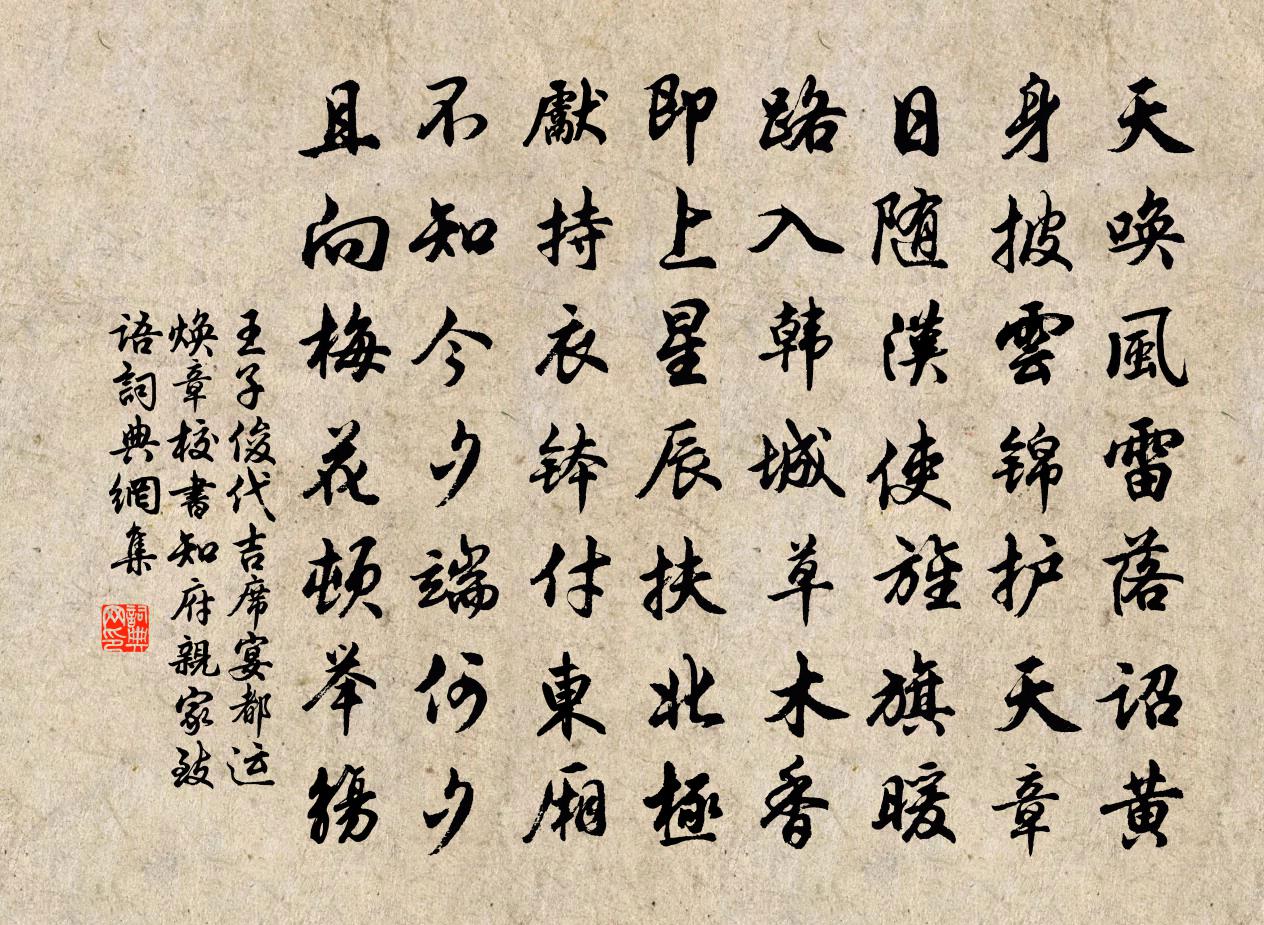 天喚風雷落詔黃
身披雲錦护天章
日随漢使旌旗暖
路入韩城草木香
即上星辰扶北極
獻持衣缽付東厢
不知今夕端何夕
且向梅花頓举觴
王子俊代吉席宴都运
焕章校書知府親家致
語詞典網集
詞典网印